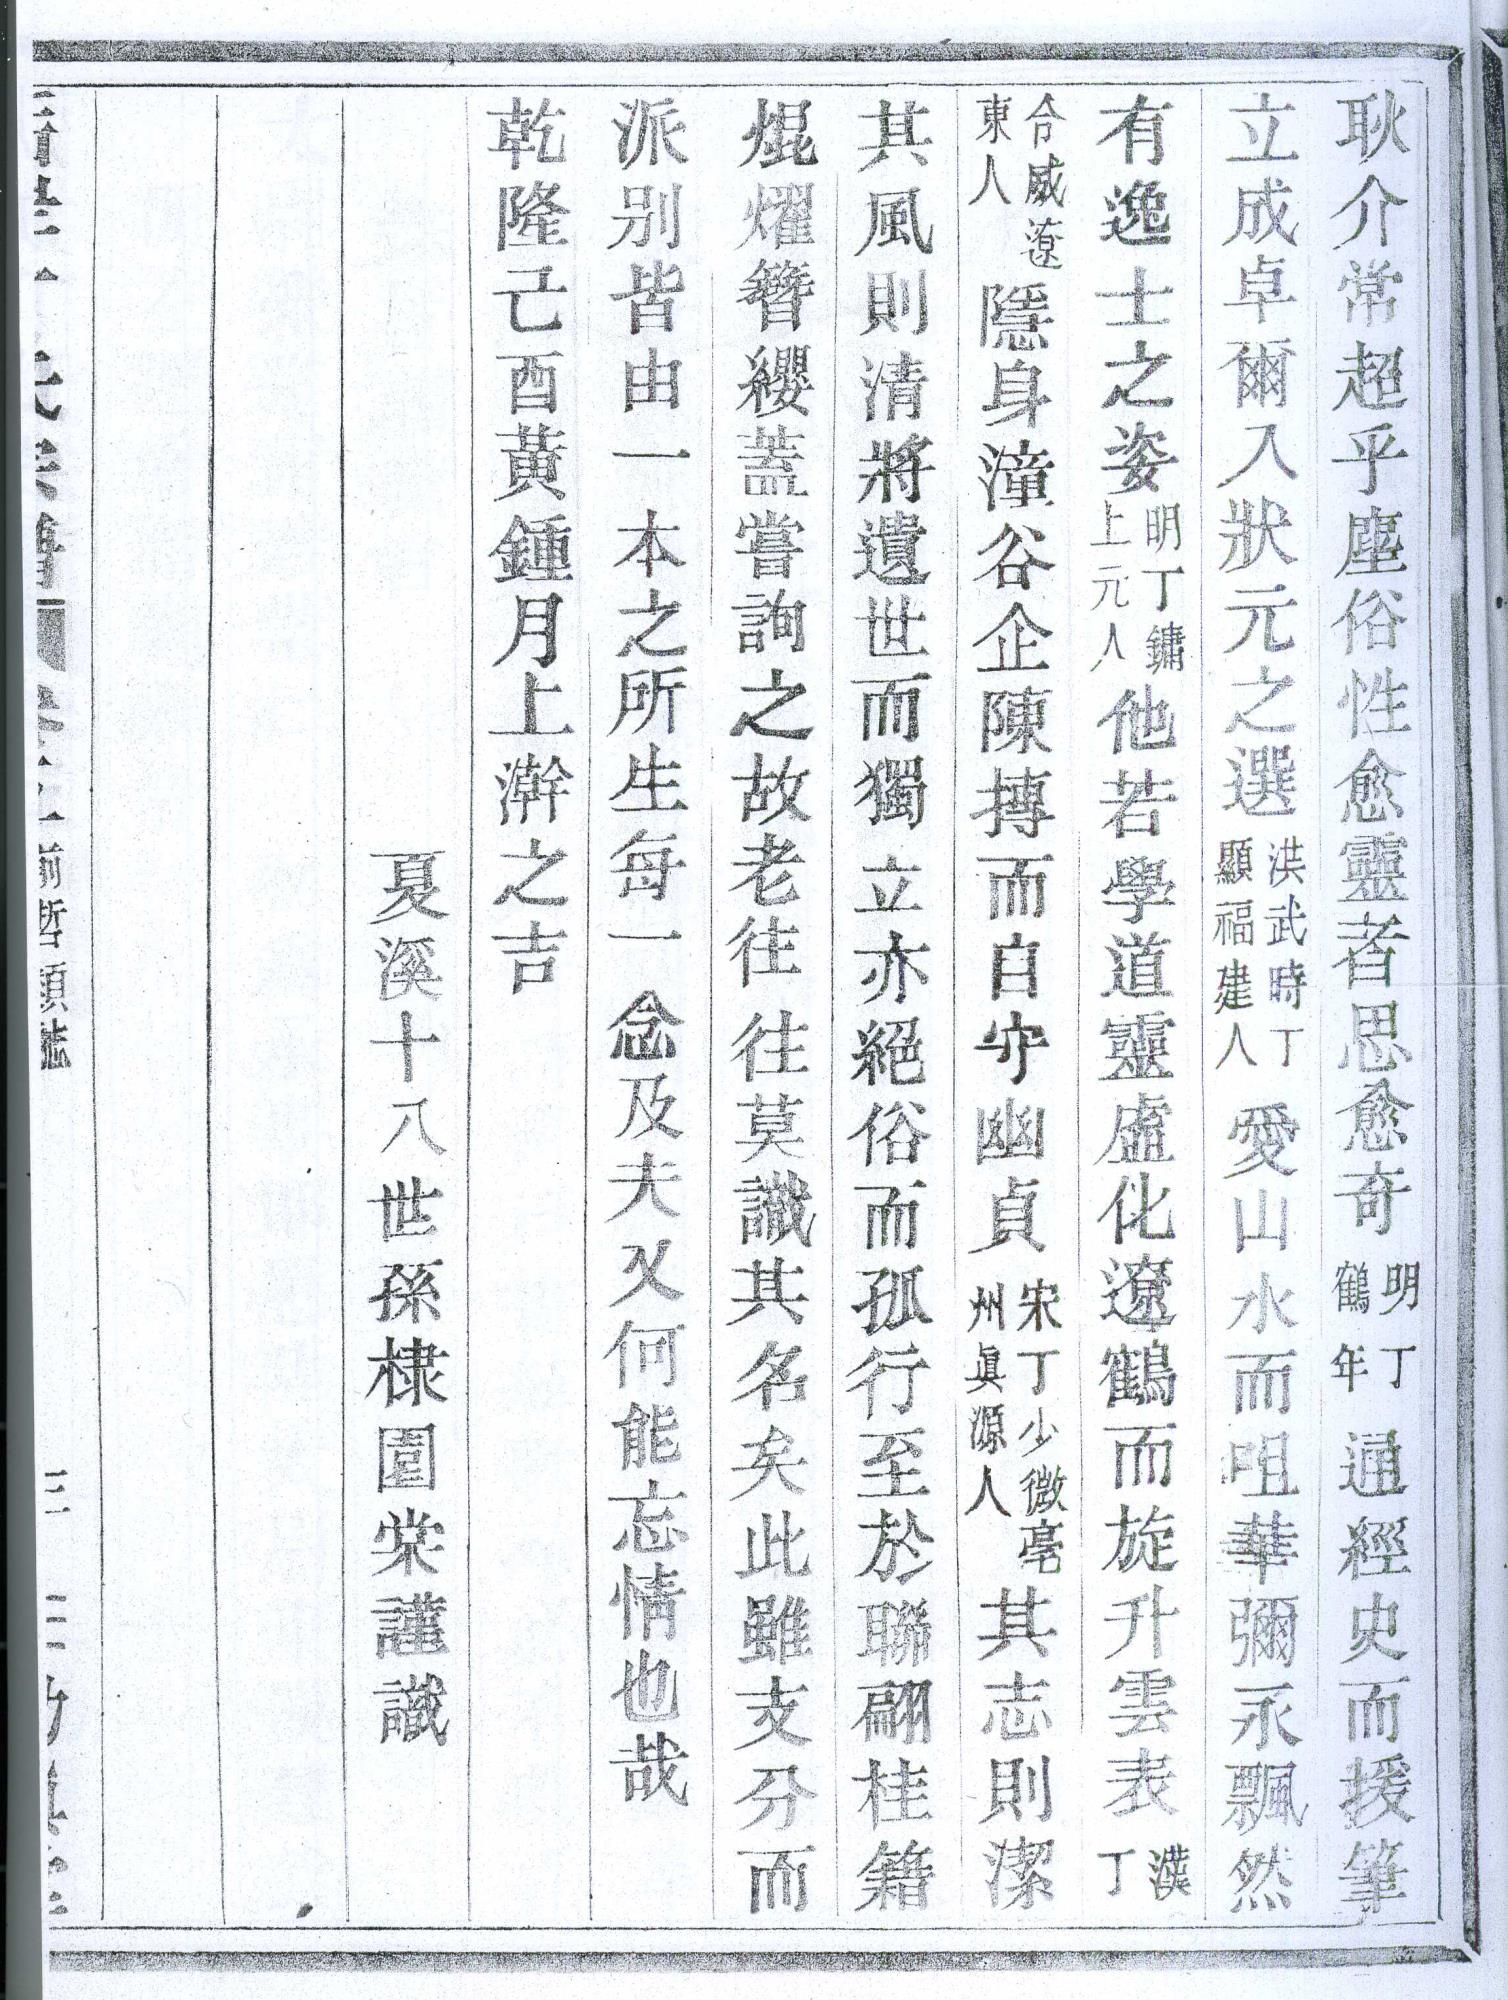 耿介常超乎塵俗性愈靈者思愈奇明丁鶴年通經史而援筆
立成卓爾入狀元之選洪武時丁顯福建人愛山水而咀華彌永飄然
有逸士之姿明丁鏞上元人他若學道靈虛化遼鶴而旋升雲表漢丁
令威遼東人隱身潼谷企陳摶而自守幽貞宋丁少微亳州眞源人其志則潔
其風則清將遺世而獨立亦絕俗而孤行至於聯翩桂籍
焜燿簪纓蓋嘗詢之故老往往莫識其名矣此雖支分而
派别皆由一本之所生每一念及夫又何能忘情也哉
乾隆己酉黃鍾月上澣之吉
夏溪十八世孫棣園棠謹識
前哲頌誌
三